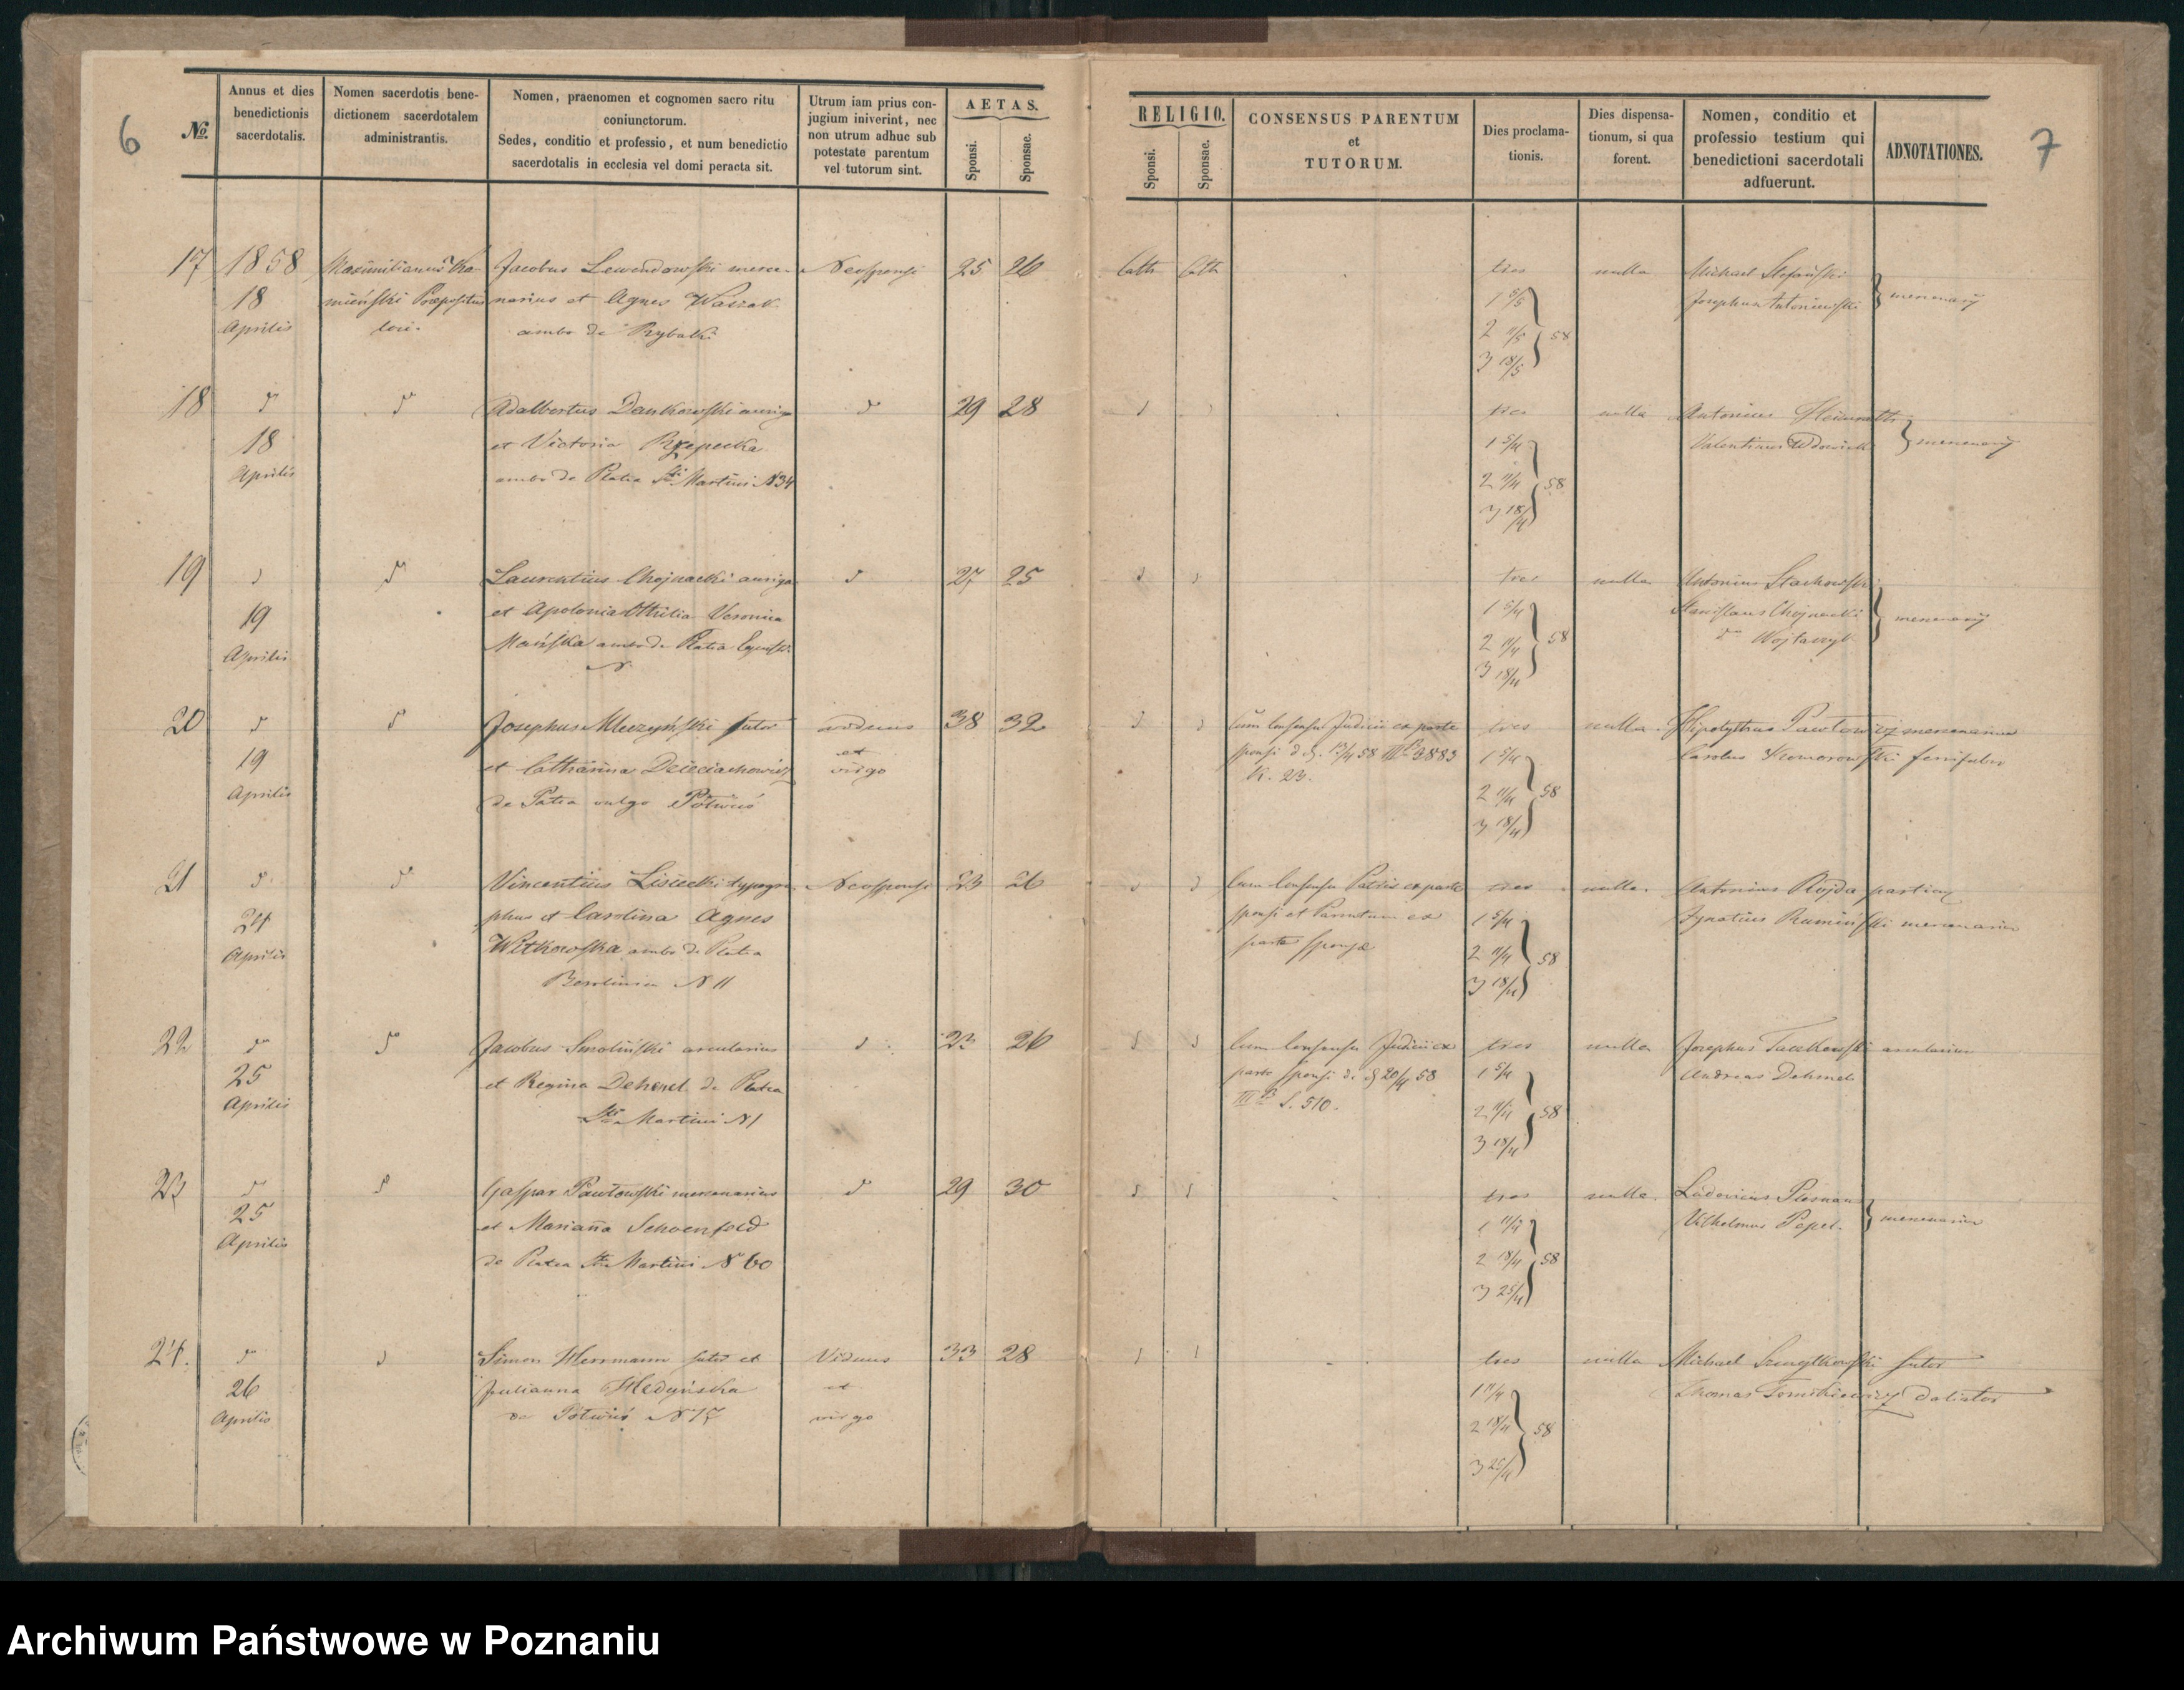 6
№.
Annus et dies
benedictionis
sacerdotalis.
Nomen sacerdotis bene-
dictionem sacerdotalem
administrantis.
Nomen, praenomen et cognomen sacro ritu
coniunctorum.
Sedes, conditio et professio, et num benedictio
sacerdotalis in ecclesia vel domi peracta sit.
Utrum iam prius con-
jugium iniverint, nec
non utrum adhuc sub
potestate parentum
vel tutorum sint.
AETAS.
Sponsi.
Sponsae.
RELIGIO.
Sponsi.
Sponsae.
CONSENSUS PARENTUM
et
TUTORUM.
Dies proclama-
tionis.
Dies dispensa-
tionum, si qua
forent.
Nomen, conditio et
professio testium qui
benedictioni sacerdotali
adfuerunt.
ADNOTATIONES.
7
17
1858
18
Aprilis
Maximilianus Ka-
mieński Praepositus
loci.
Jacobus Lewandowski merce-
narius et Agnes Waszak
ambo de Rybaki
Neosponsi
25 26
Cath Cath
tres
1 5/5
2 11/5
3 18/5
58
nulla
Michael Stefański
Josephus Antoniewski
mercenarij
18
18
Aprilis
Adalbertus Dankowski auriga
et Victoria Rzepecka
ambo de Platea Sti Martini N 34
29 28
tres
1 5/4
2 11/4
3 18/4
58
nulla
Antonius
Valentinus
mercenarij
19
19
Aprilis
Laurentius Chojnacki auriga
et Apolonia Ottilia Veronica
Mańska ambo de Platea
N
27 25
tres
1 5/4
2 11/4
3 18/4
58
nulla
Antonius Stachowski
Stanislaus Chojnacki
Wojtaszyk
mercenarij
20
19
Aprilis
Josephus Mleczyński sutor
et Catharina Dzieciachowicz
de Platea vulgo Półwieś
viduus
et
virgo
38 32
Cum Consensu Judicii ex parte
sponsi
K. 23.
tres
1 5/4
2 11/4
3 18/4
58
nulla
Hipolythus Pawłowicz mercenarius
Carolus Komorowski
21
21
Aprilis
Vincentius Lisiecki typogra-
phus et Carolina Agnes
Witkowska ambo de Platea
Berolinien N 11
Neosponsi
23 26
Cum Consensu Patris ex parte
sponsi et Parentum ex
parte sponsae
tres
1 5/4
2 11/4
3 18/4
58
nulla
Antonius Rojda
Ignatius Rumiński mercenarius
22
25
Aprilis
Jacobus Smoliński arcularius
et Regina Dehmel de Platea
Sti Martini N 1
23 26
Cum Consensu Judicii ex
parte sponsi 20/4 58
S. 510.
tres
1 5/4
2 11/4
3 18/4
58
nulla
Josephus Taczkowski arcularius
Andreas Dehmel
23
25
Aprilis
Gaspar Pawłowski mercenarius
et Marianna Schoenfeld
de Platea Sti Martini N 60
29 30
tres
1 11/4
2 18/4
3 25/4
58
nulla
Ludovicus
Vilhelmus Popel
mercenarii
24.
26
Aprilis
Simon Herrmann sutor et
Julianna Hedyńska
de Półwieś N 17
Viduus
et
virgo
33 28
tres
1 11/4
2 18/4
3 25/4
58
nulla
Michael Szmytkowski sutor
Thomas Tomikiewicz doliator
Archiwum Państwowe w Poznaniu